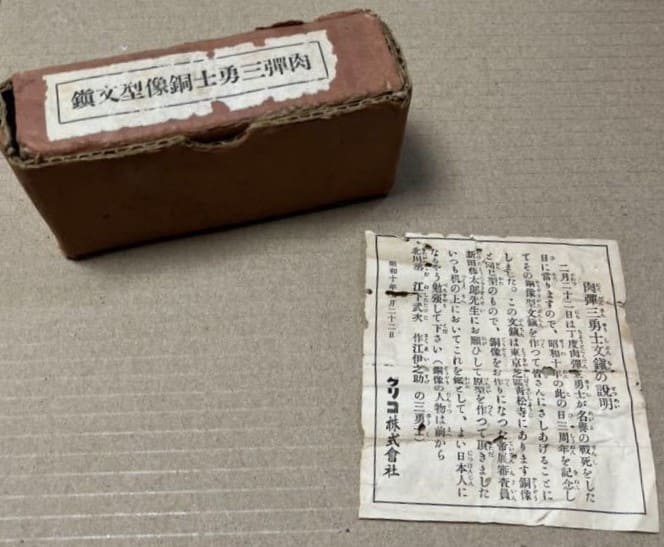 肉彈三勇士銅像型文鎭
肉彈三勇士文鎭の說明
二月二十二日は丁度肉彈三勇士が名譽の戰死をした
日に當りますので、昭和十年の此の日三周年を記念し
てその銅像型文鎭を作つて皆さんにさしあげることに
しました。この文鎭は東京芝區靑松寺にあります銅像
と同じ型のもので、銅像をお作りになつた帝展審査員
新田藤太郎先生にお願ひして原型を作つて頂きました
いつも机の上においてこれを鑑として、よい日本人に
なるやう勉强して下さい(銅像の人物は前から
北川丞 江下武次 作江伊之助 の三勇士)
昭和十年 月二十二日
グリコ株式會社